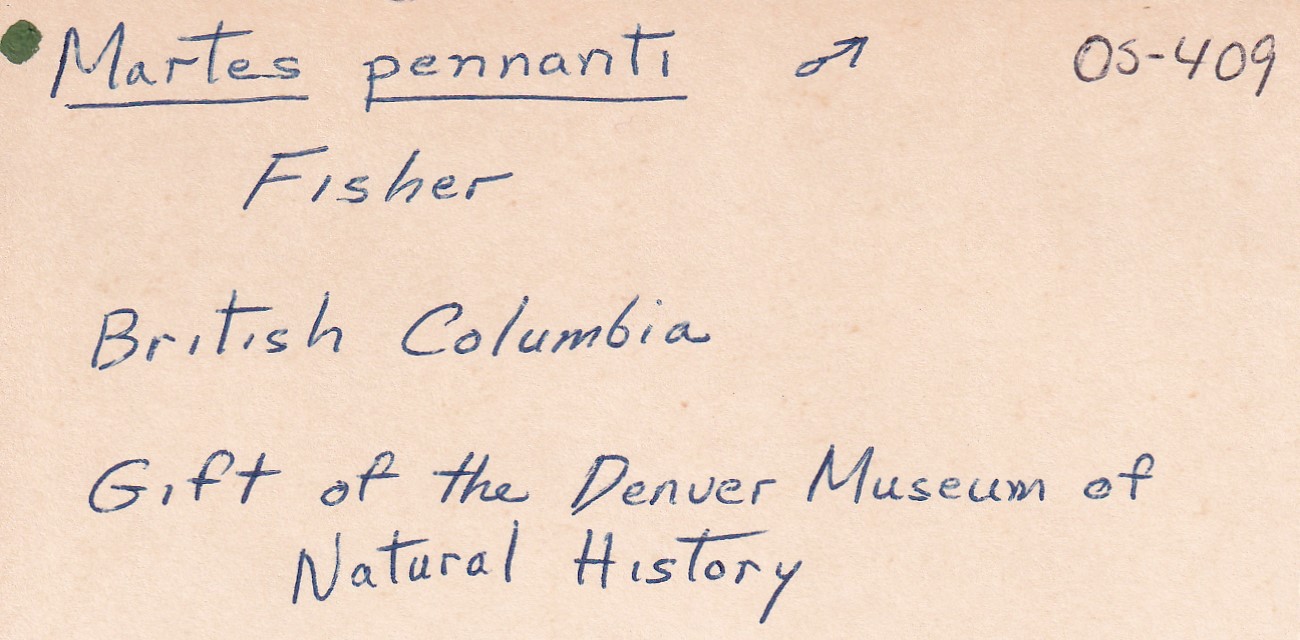 Martes pennanti ♂ OS-409
Fisher
British Columbia
Gift of the Denver Museum of
Natural History